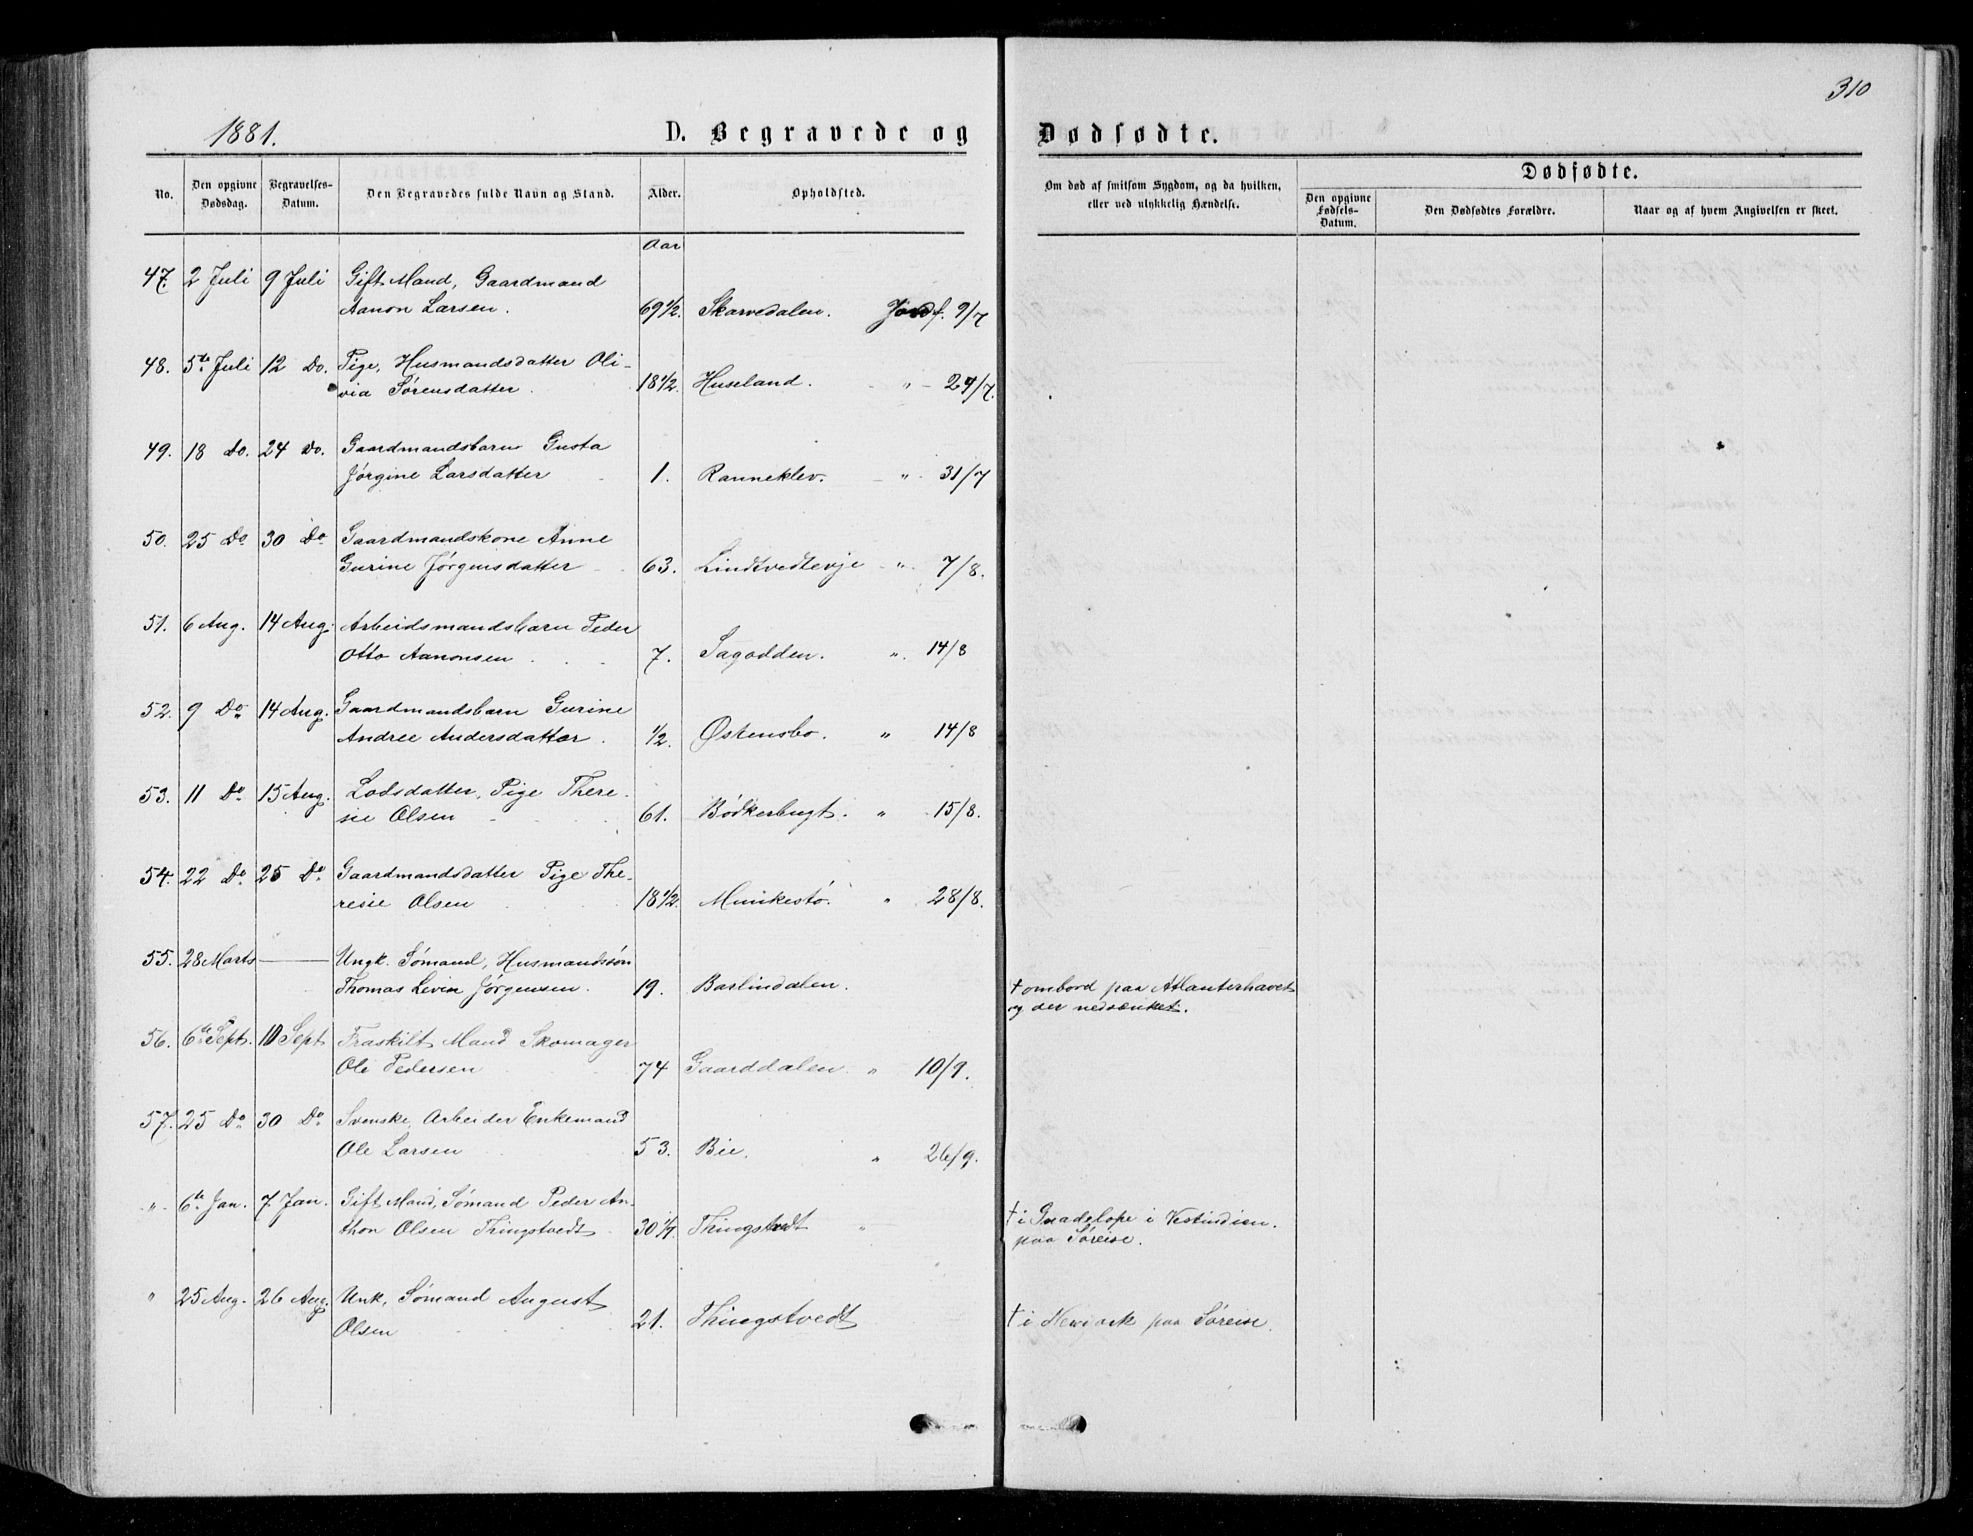 310
1881.
D. Begravede og Dødfødte.
No.
Den opgivne Dødsdag.
Begravelses-Datum.
Den Begravedes fulde Navn og Stand.
Alder.
Opholdsted.
Om død af smitsom Sygdom, og da hvilken, eller ved ulykkelig Hændelse.
Dødfødte.
Den opgivne Fødsels-Datum.
Den Dødfødtes Forældre.
Naar og af hvem Angivelsen er skeet.
Aar
47. 2 Juli 9 Juli Gift Mand, Gaardmand
Aanon Larsen. 69 1/2. Skarvedalen. Jordf. 9/7
48. 5te Juli 12 Do. Pige, Husmandsdatter Oli-
via Sørensdatter. 18 1/2. Huseland. " - 24/7.
49. 18 Do. 24 Do. Gaardmandsbarn Gusta
Jørgine Larsdatter 1. Ranneklev. " 31/7
50. 25 Do 30 Do Gaardmandskone Anne
Gurine Jørgensdatter 63. Lindtvedtevje " 7/8.
51. 6 Aug. 14 Aug. Arbeidsmandsbarn Peder
Otto Aanonsen 7. Sagodden. " 14/8
52. 9 Do 14 Aug. Gaardmandsbarn Gurine
Andree Andersdatter. 1/2. Østensbo. " 14/8
53. 11 Do 15 Aug. Lodsdatter, Pige There-
sie Olsen 61. Bødkerbugt. " 15/8.
54. 22 Do 25 Do Gaardmandsdatter Pige The-
resie Olsen 18 1/2. Munkestø. " 28/8.
55. 28 Marts — Ungk. Sømand, Husmandssøn
Thomas Levin Jørgensen. 19. Barlindalen. † ombord paa Atlanterhavet
og der nedsænket.
56. 6te Sept. 10 Sept Fraskilt Mand Skomager
Ole Pedersen 74 Gaarddalen " 10/9.
57. 25 Do 30 Do Svenske Arbeider Enkemand
Ole Larsen 53. Bie. " 26/9.
" 6te Jan. 7 Jan. Gift Mand, Sømand Peder An-
thon Olsen Thingstvedt 30 Thingstvedt " † i Guadelope i Vestindien.
paa Søreise.
" 25 Aug. 26 Aug. Unk, Sømand August
Olsen 21. Thingstvedt † i Newyork paa Søreise.